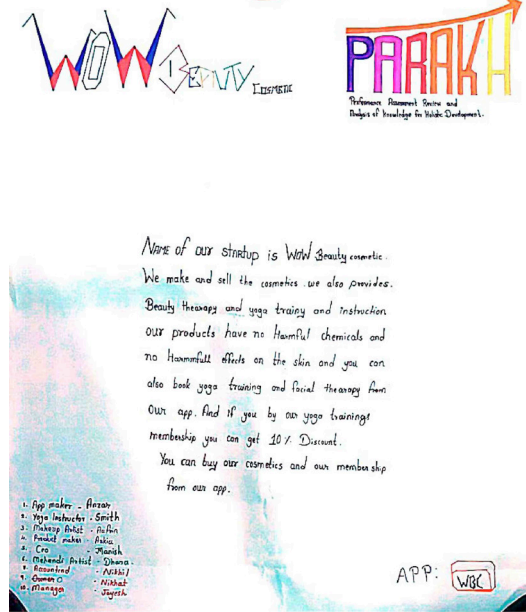 WOW BEAUTY COSMETIC
PARAKH
Performance Assessment Review and
Analysis of Knowledge for Holistic Development.
NAME of our startup is WOW Beauty cosmetic.
We make and sell the cosmetics. we also provides.
Beauty thearapy and yoga trainy and instruction
our products have no Harmful chemicals and
no Harmmfull effects on the skin and you can
also book yoga training and facial thearapy from
Our app. And if you by our yoga trainings
membership you can get 10% Discount.
You can buy our cosmetics and our membership
from our app.
1. App maker - Anzar
2. Yoga Instructor - Smith
3. Makeup Artist -
4. Product maker -
5. Cro - Manish
6. Mehandi Artist - Dhana
8. Accountnd - Nikhil
9. - Nikhat
10. Manager - Jayesh
APP: WBC